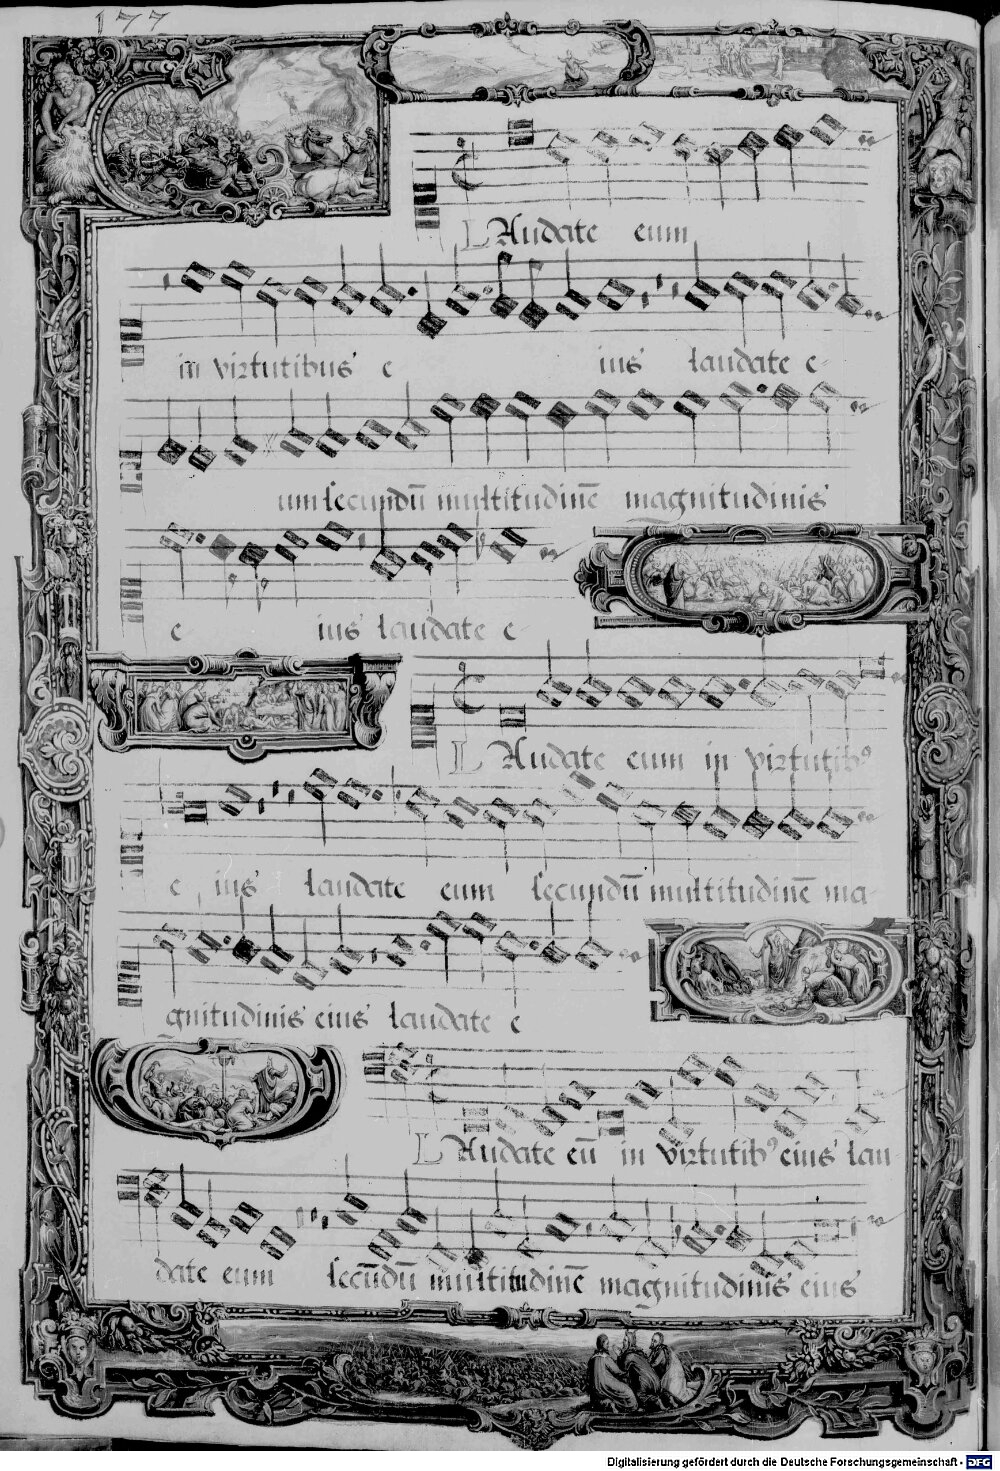 177
LAudate eum
in virtutibus e ius laudate e-
um secundū multitudinē magnitudinis
e ius laudate e
LAudate eum in virtutibꝰ
e ius laudate eum secundū multitudinē ma-
gnitudinis eius laudate e
LAudate eū in virtutibꝰ eius lau-
date eum secūdū multitudinē magnitudinis eius
Digitalisierung gefördert durch die Deutsche Forschungsgemeinschaft - DFG